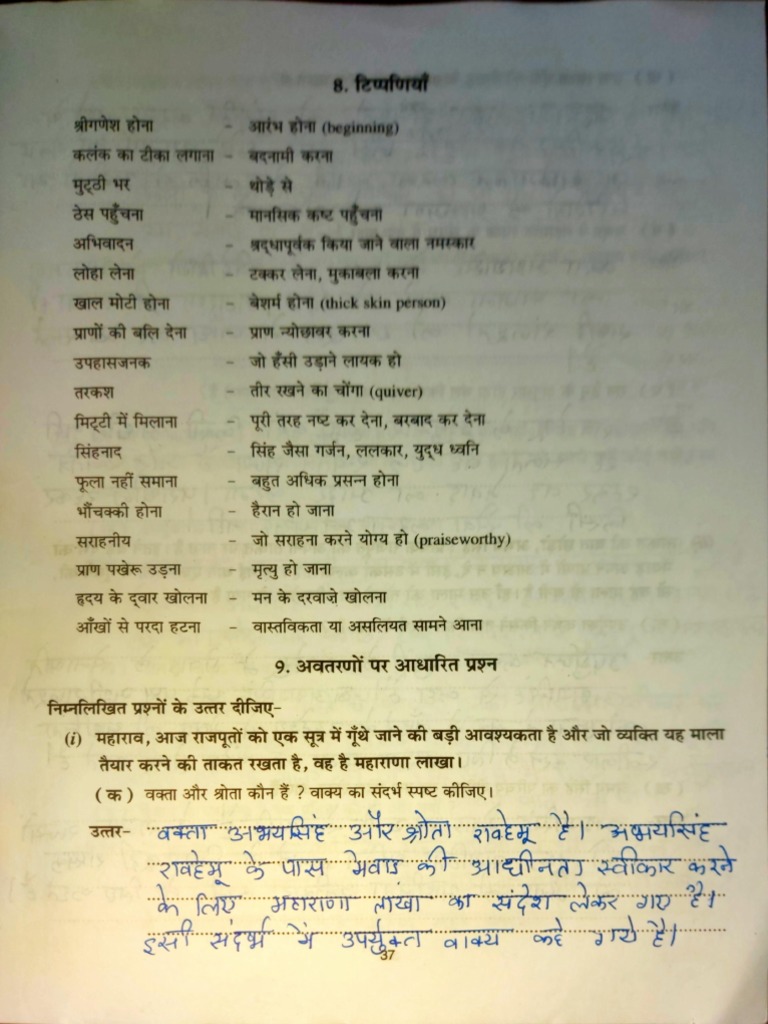 8. टिप्पणियाँ
श्रीगणेश होना - आरंभ होना (beginning)
कलंक का टीका लगाना - बदनामी करना
मुट्ठी भर - थोड़े से
ठेस पहुँचना - मानसिक कष्ट पहुँचना
अभिवादन - श्रद्धापूर्वक किया जाने वाला नमस्कार
लोहा लेना - टक्कर लेना, मुकाबला करना
खाल मोटी होना - बेशर्म होना (thick skin person)
प्राणों की बलि देना - प्राण न्योछावर करना
उपहासजनक - जो हँसी उड़ाने लायक हो
तरकश - तीर रखने का चोंगा (quiver)
मिट्टी में मिलाना - पूरी तरह नष्ट कर देना, बरबाद कर देना
सिंहनाद - सिंह जैसा गर्जन, ललकार, युद्ध ध्वनि
फूला नहीं समाना - बहुत अधिक प्रसन्न होना
भौंचक्की होना - हैरान हो जाना
सराहनीय - जो सराहना करने योग्य हो (praiseworthy)
प्राण पखेरू उड़ना - मृत्यु हो जाना
हृदय के द्वार खोलना - मन के दरवाज़े खोलना
आँखों से परदा हटना - वास्तविकता या असलियत सामने आना
9. अवतरणों पर आधारित प्रश्न
निम्नलिखित प्रश्नों के उत्तर दीजिए-
(i) महाराव, आज राजपूतों को एक सूत्र में गूँथे जाने की बड़ी आवश्यकता है और जो व्यक्ति यह माला
तैयार करने की ताकत रखता है, वह है महाराणा लाखा।
(क) वक्ता और श्रोता कौन हैं ? वाक्य का संदर्भ स्पष्ट कीजिए।
उत्तर- वक्ता अभयसिंह और श्रोता रावहेमू है। अभयसिंह
रावहेमू के पास मेवाड की आधीनता स्वीकार करने
के लिए महाराणा लाखा का संदेश लेकर गए है।
इसी संदर्भ में उपर्युक्त वाक्य कहे गये है।
37